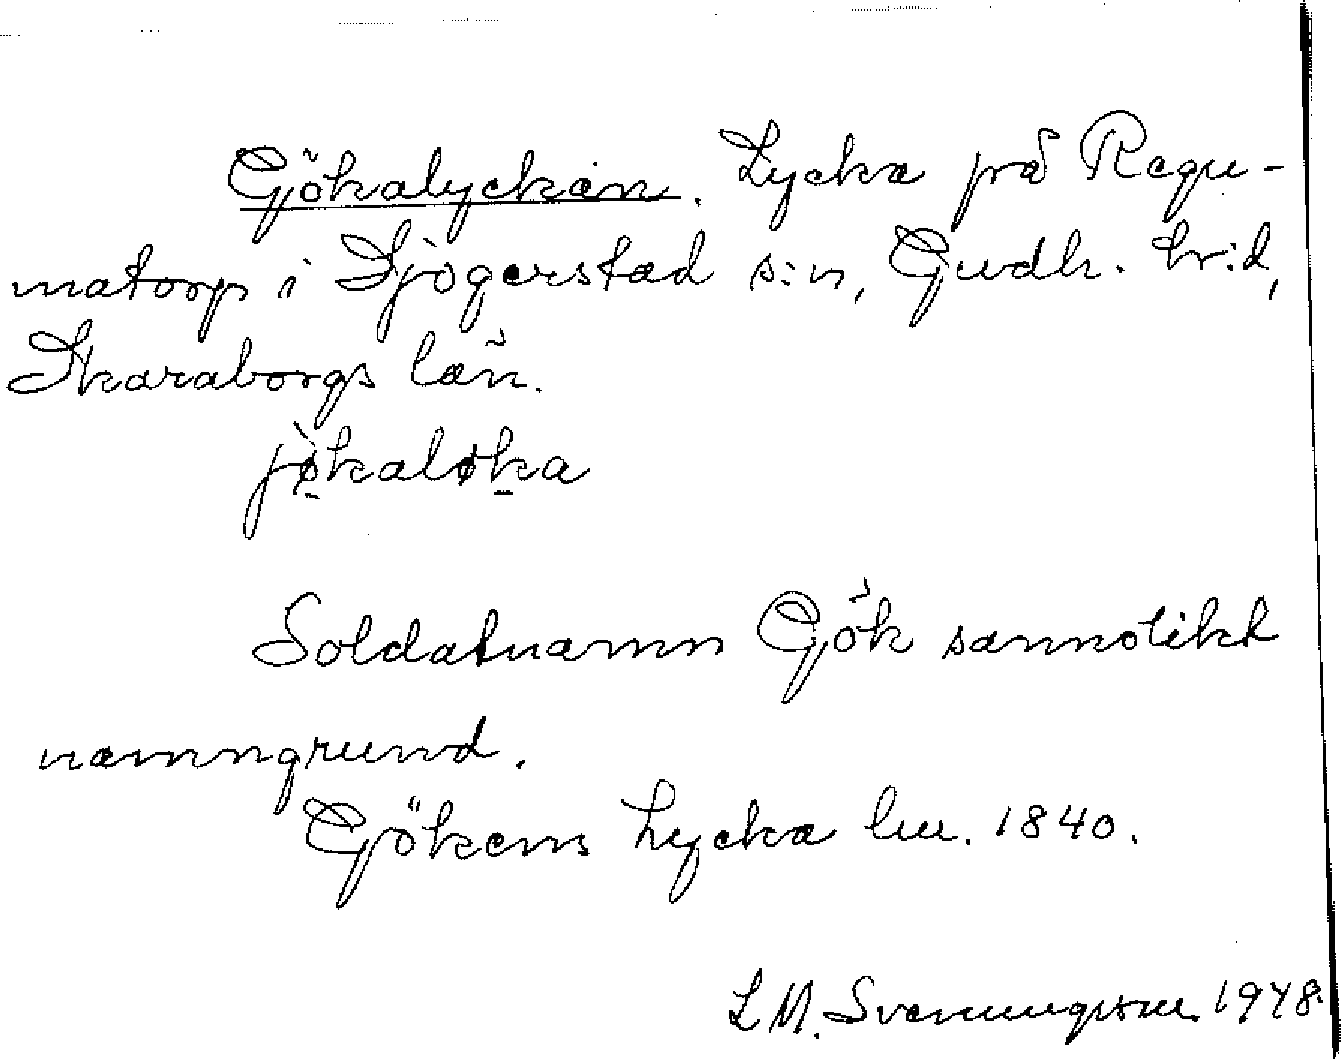 Gökalyckan. Lycka på Regu-
matorp i Sjögerstad s:n, Gudh. hr:d,
Skaraborgs län.
jø̀kaløka
Soldatnamn Gök sannolikt
namngrund.
Gjökens Lycka lm. 1840.
L M. Svenungsson 1948.